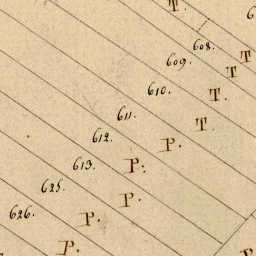 T.
6
608.
T
609.
T
610.
T.
611.
T.
612.
P.
613.
P.
625.
P.
626.
P.
P.